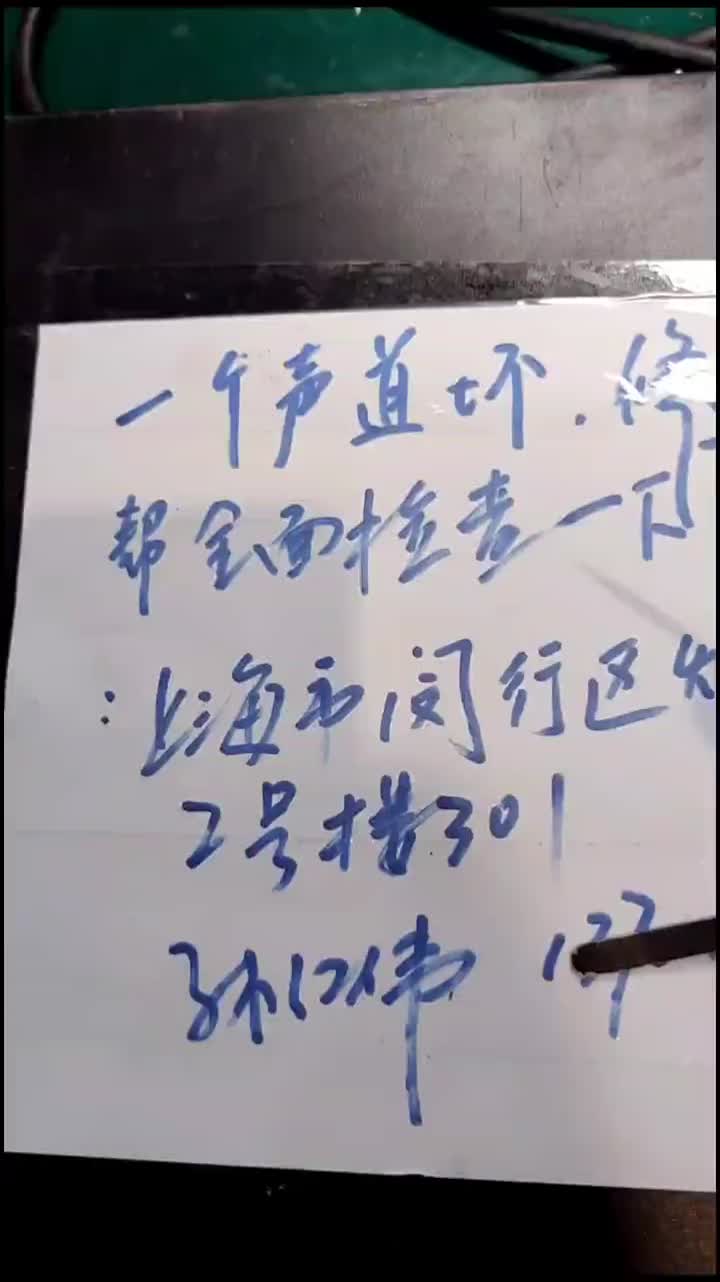 一个声道坏.修
帮全面检查一下
:上海市闵行区
2号楼301
孙仁伟 137